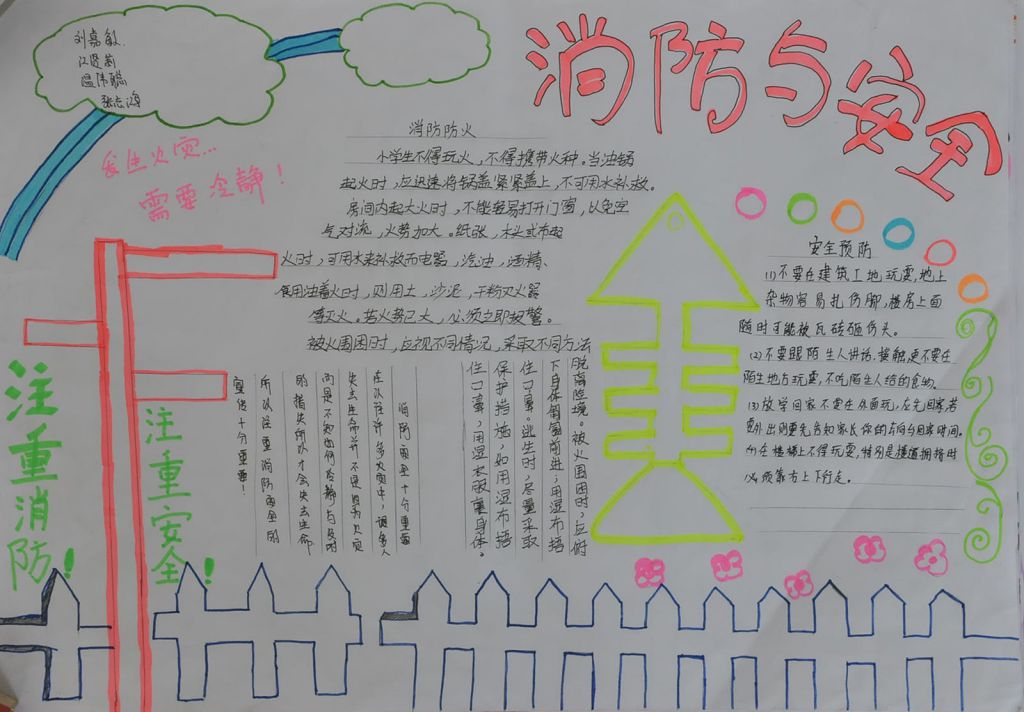 消防与安全
刘嘉敏
温伟聪
发生火灾...
需要冷静！
消防防火
小学生不得玩火，不得携带火种。当油锅
起火时，应迅速将锅盖紧紧盖上，不可用水补救。
房间内起大火时，不能轻易打开门窗，以免空
气对流，火势加大。纸张，木头或布起
火时，可用水来补救而电器，汽油，酒精、
食用油着火时，则用土，沙泥，干粉灭火器
等灭火。若火势已大，必须立即报警。
被火围困时，应视不同情况，采取不同方法
脱离险境。被火围困时，应俯
下身体匍匐前进，用湿布捂
住口鼻。逃生时，尽量采取
保护措施，如用湿布捂
住口鼻，用湿衣服裹身体。
消防安全十分重要
在以往许多火灾中，很多人
失去生命并不是因为火灾
而是不知如何冷静与及时
的措失所以才会失去生命
所以注重消防安全的
宣传十分重要！
安全预防
(1)不要在建筑工地玩耍,地上
杂物容易扎伤脚,楼房上面
随时可能被瓦砖砸伤头。
(2)不要跟陌生人讲话,接触,更不要在
陌生地方玩耍,不吃陌生人给的食物。
(3)放学回家不要在外面玩,应先回家,若
要外出则要先告知家长你的去向与回来时间。
(4)在楼梯上不得玩耍,特别是楼道拥挤时
必须靠右上下行走。
注重消防！
注重安全！